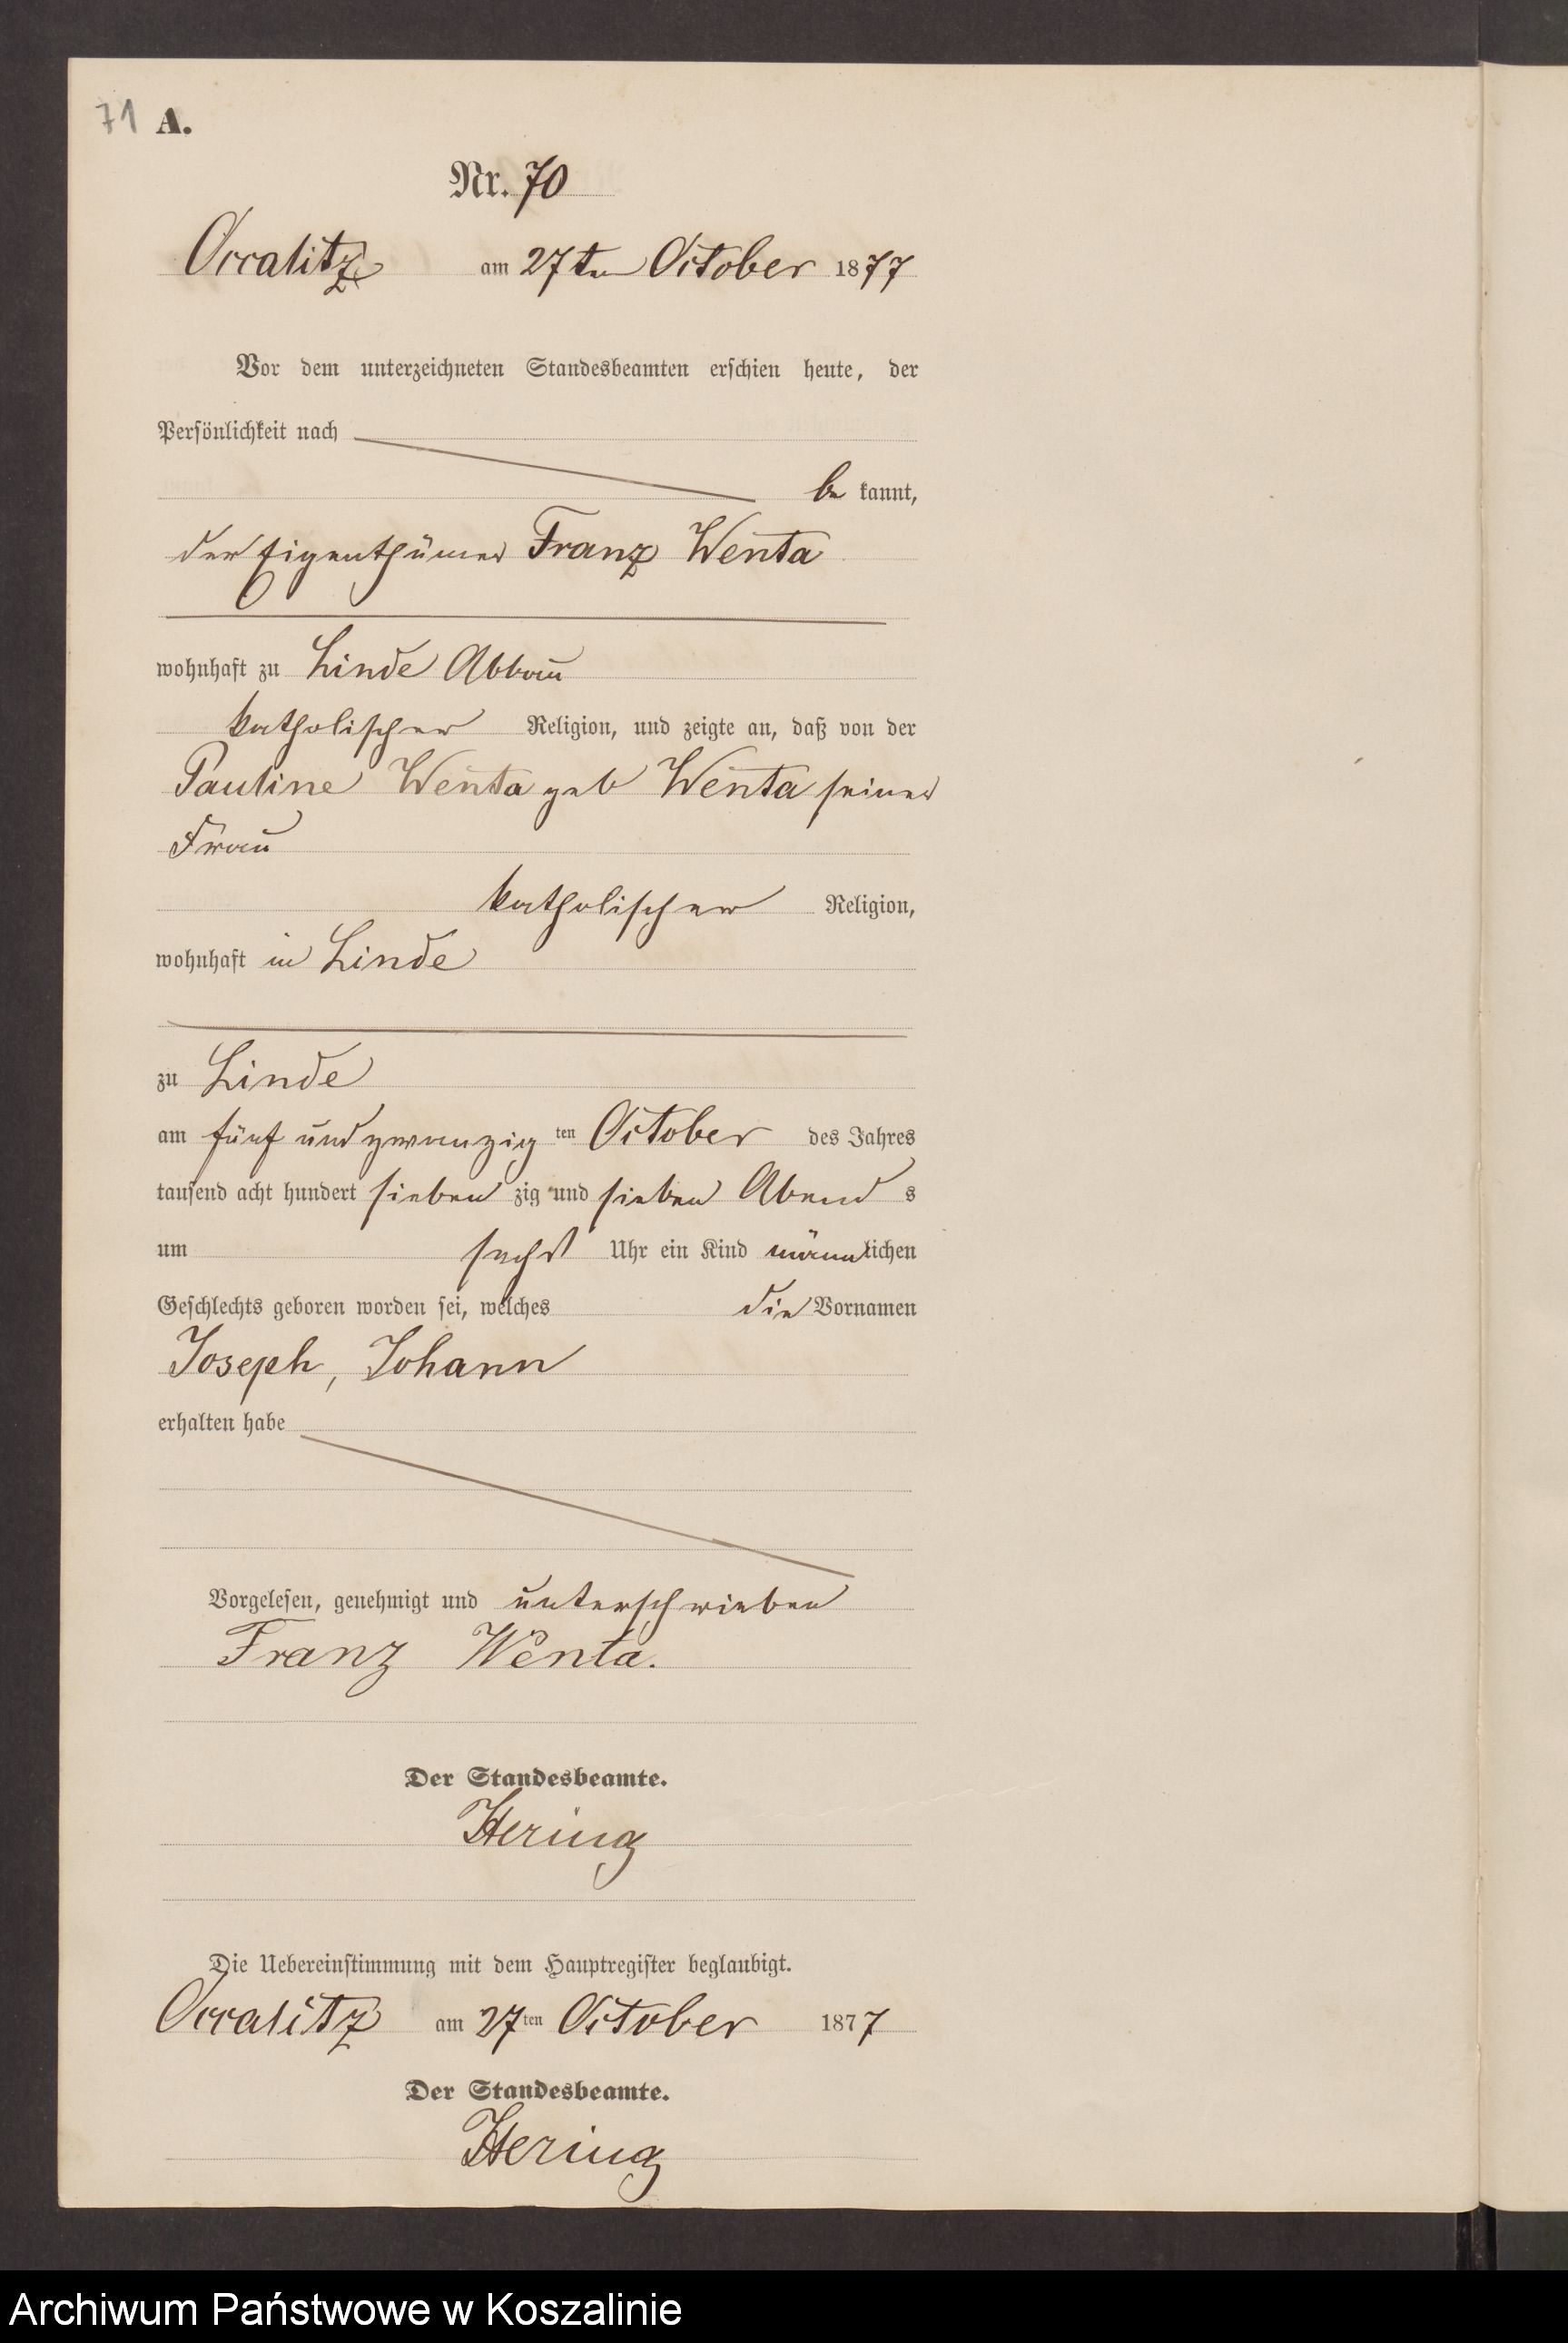 71 A.
Nr. 70
Occalitz am 27ten October 1877
Vor dem unterzeichneten Standesbeamten erschien heute, der
Persönlichkeit nach
be kannt,
der Eigenthümer Franz Wenta
wohnhaft zu Linde Abbau
katholischer Religion, und zeigte an, daß von der
Pauline Wenta geb Wenta seiner
Frau
katholischer Religion,
wohnhaft in Linde
zu Linde
am fünf und zwanzig ten October des Jahres
tausend acht hundert sieben zig und sieben Abend s
um sechs Uhr ein Kind männlichen
Geschlechts geboren worden sei, welches die Vornamen
Joseph, Johann
erhalten habe
Vorgelesen, genehmigt und unterschrieben
Franz Wenta.
Der Standesbeamte.
Hering
Die Uebereinstimmung mit dem Hauptregister beglaubigt.
Occalitz am 27ten October 1877
Der Standesbeamte.
Hering
Archiwum Państwowe w Koszalinie